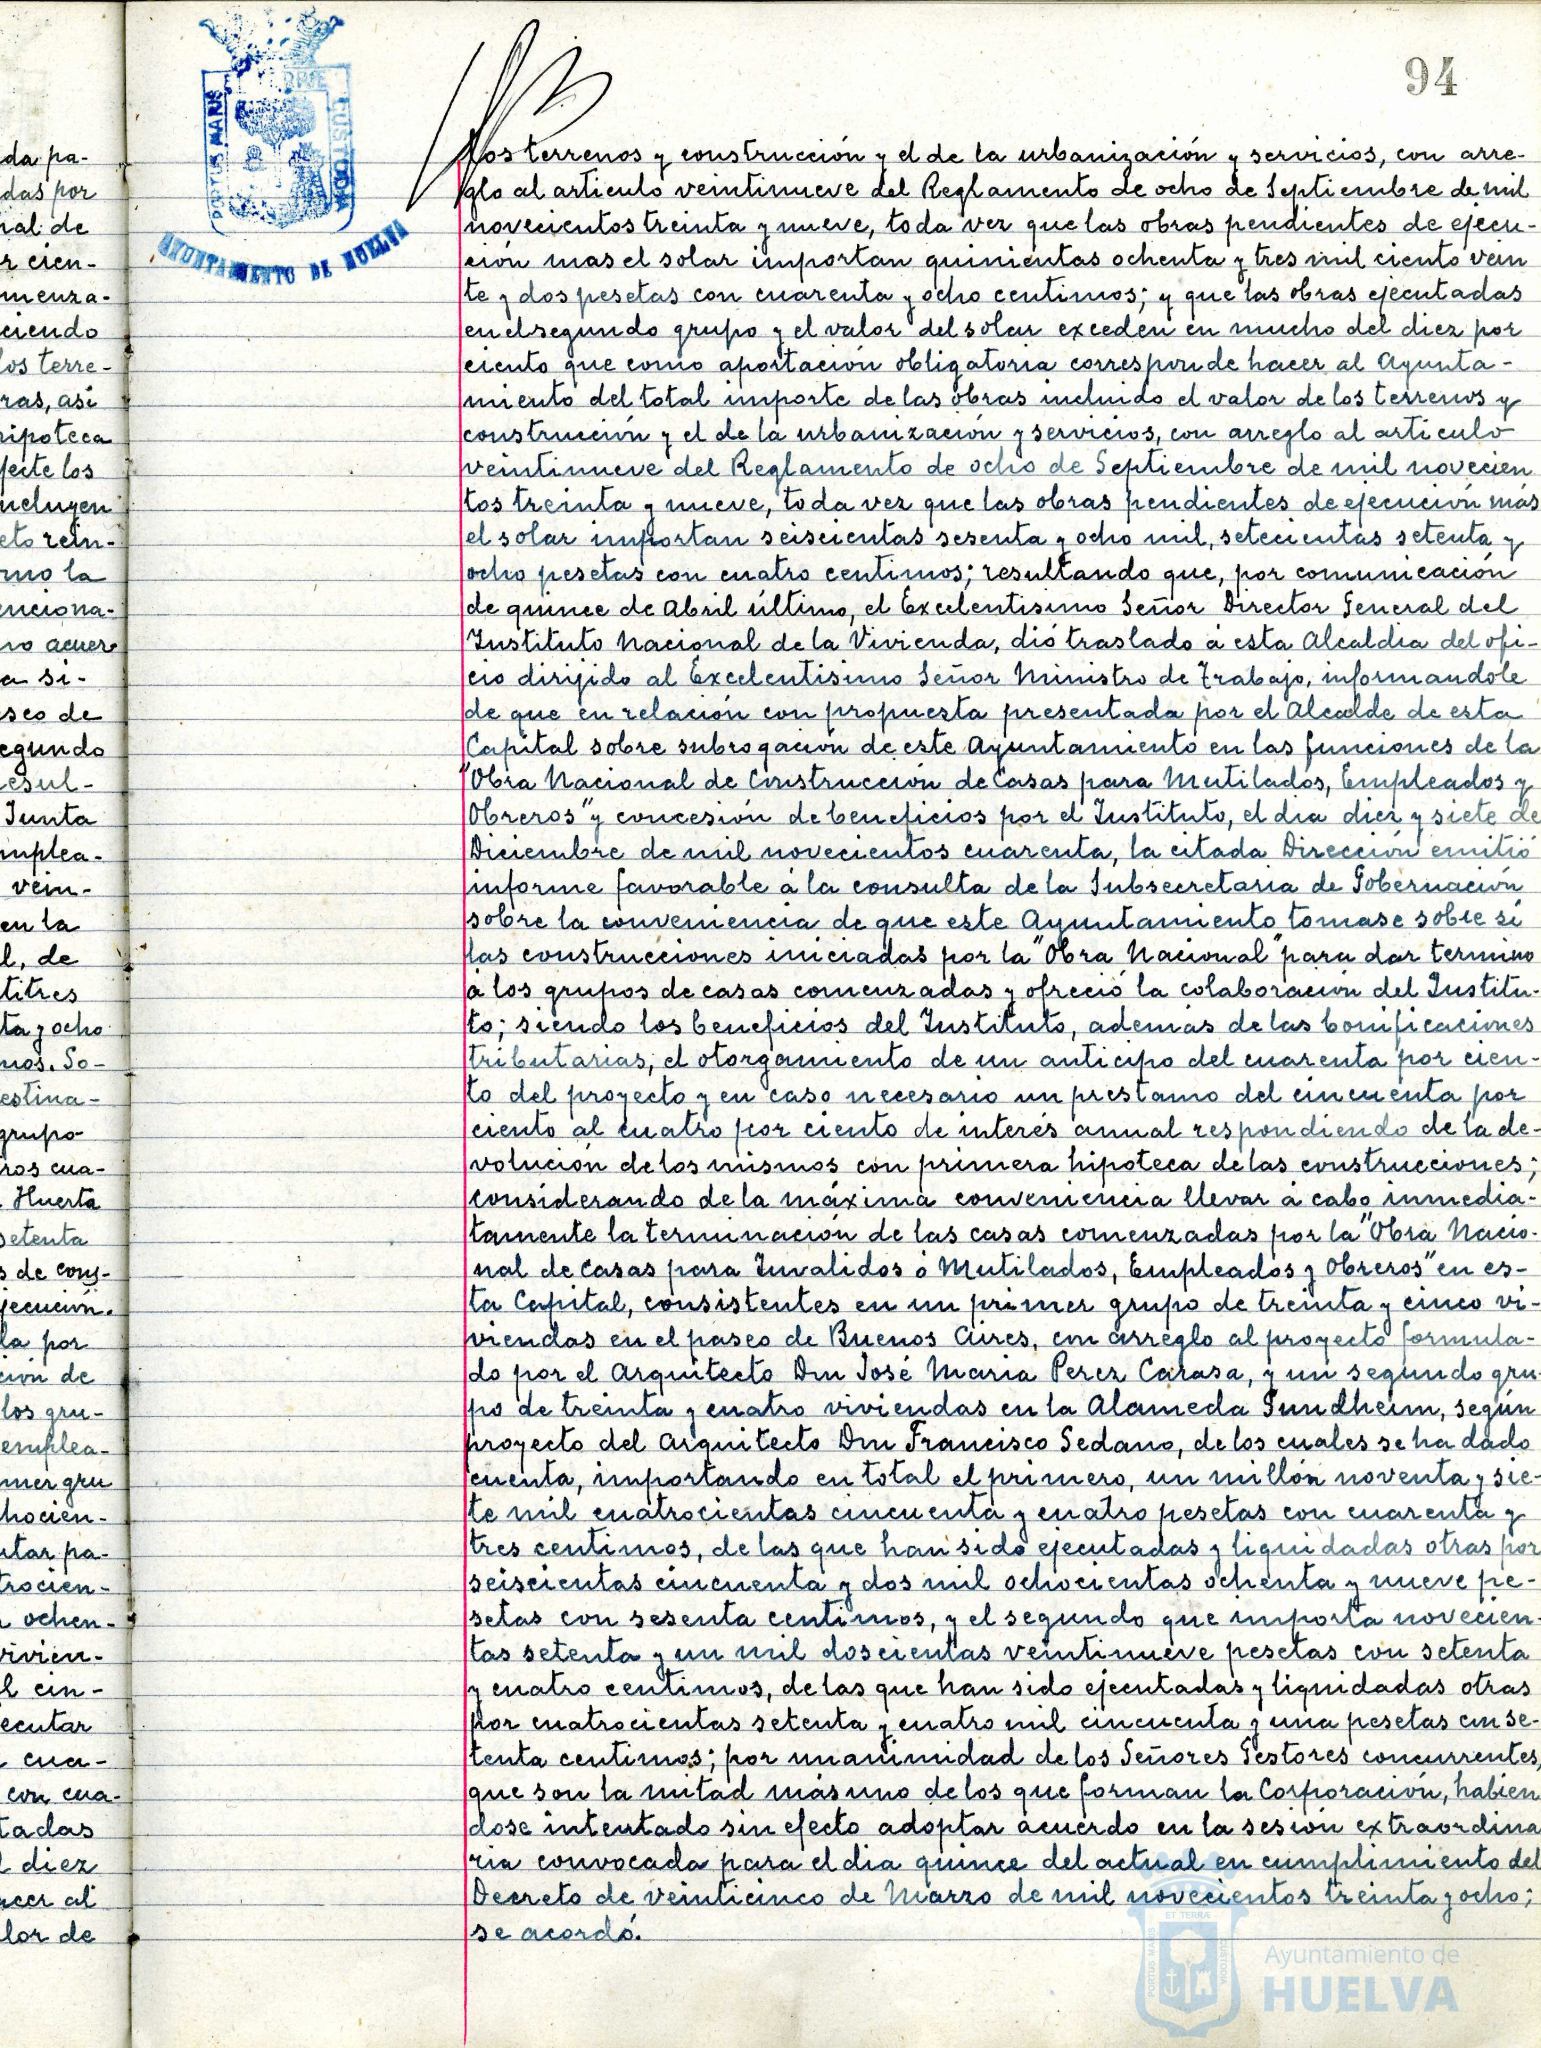 94
PORTUS MARIS
CUSTODIA
AYUNTAMIENTO DE HUELVA
los terrenos y construcción y el de la urbanización y servicios, con arre-
glo al articulo veintinueve del Reglamento de ocho de Septiembre de mil
novecientos treinta y nueve, toda vez que las obras pendientes de ejecu-
ción mas el solar importan quinientas ochenta y tres mil ciento vein
te y dos pesetas con cuarenta y ocho centimos; y que las obras ejecutadas
en el segundo grupo y el valor del solar exceden en mucho del diez por
ciento que como aportación obligatoria corresponde hacer al Ayunta-
miento del total importe de las obras incluido el valor de los terrenos y
construcción y el de la urbanización y servicios, con arreglo al articulo
veintinueve del Reglamento de ocho de Septiembre de mil novecien
tos treinta y nueve, toda vez que las obras pendientes de ejecución más
el solar importan seiscientas sesenta y ocho mil, setecientas setenta y
ocho pesetas con cuatro centimos; resultando que, por comunicación
de quince de Abril último, el Excelentisimo Señor Director General del
Instituto Nacional de la Vivienda, dió traslado á esta Alcaldia del ofi-
cio dirijido al Excelentisimo Señor Ministro de Trabajo, informandole
de que en relación con propuesta presentada por el Alcalde de esta
Capital sobre subrogación de este Ayuntamiento en las funciones de la
"Obra Nacional de Construcción de Casas para Mutilados, Empleados y
Obreros" y concesión de beneficios por el Instituto, el dia diez y siete de
Diciembre de mil novecientos cuarenta, la citada Dirección emitió
informe favorable á la consulta de la Subsecretaria de Gobernación
sobre la conveniencia de que este Ayuntamiento tomase sobre si
las construcciones iniciadas por la "Obra Nacional" para dar termino
á los grupos de casas comenzadas y ofreció la colaboración del Institu-
to; siendo los beneficios del Instituto, además de las bonificaciones
tributarias, el otorgamiento de un anticipo del cuarenta por cien-
to del proyecto y en caso necesario un prestamo del cincuenta por
ciento al cuatro por ciento de interés anual respondiendo de la de-
volución de los mismos con primera hipoteca de las construcciones;
considerando de la máxima conveniencia llevar á cabo inmedia-
tamente la terminación de las casas comenzadas por la "Obra Nacio-
nal de Casas para Invalidos ó Mutilados, Empleados y Obreros" en es-
ta Capital, consistentes en un primer grupo de treinta y cinco vi-
viendas en el paseo de Buenos Aires, con arreglo al proyecto formula-
do por el Arquitecto Don José Maria Perez Carasa, y un segundo gru-
po de treinta y cuatro viviendas en la Alameda Sundheim, según
proyecto del Arquitecto Don Francisco Sedano, de los cuales se ha dado
cuenta, importando en total el primero, un millón noventa y sie-
te mil cuatrocientas cincuenta y cuatro pesetas con cuarenta y
tres centimos, de las que han sido ejecutadas y liquidadas otras por
seiscientas cincuenta y dos mil ochocientas ochenta y nueve pe-
setas con sesenta centimos, y el segundo que importa novecien-
tas setenta y un mil doscientas veintinueve pesetas con setenta
y cuatro centimos, de las que han sido ejecutadas y liquidadas otras
por cuatrocientas setenta y cuatro mil cincuenta y una pesetas con se-
tenta centimos; por unanimidad de los Señores Gestores concurrentes,
que son la mitad más uno de los que forman la Corporación, habien
dose intentado sin efecto adoptar acuerdo en la sesión extraordina
ria convocada para el dia quince del actual en cumplimiento del
Decreto de veinticinco de Marzo de mil novecientos treinta y ocho;
se acordó.
Ayuntamiento de
HUELVA